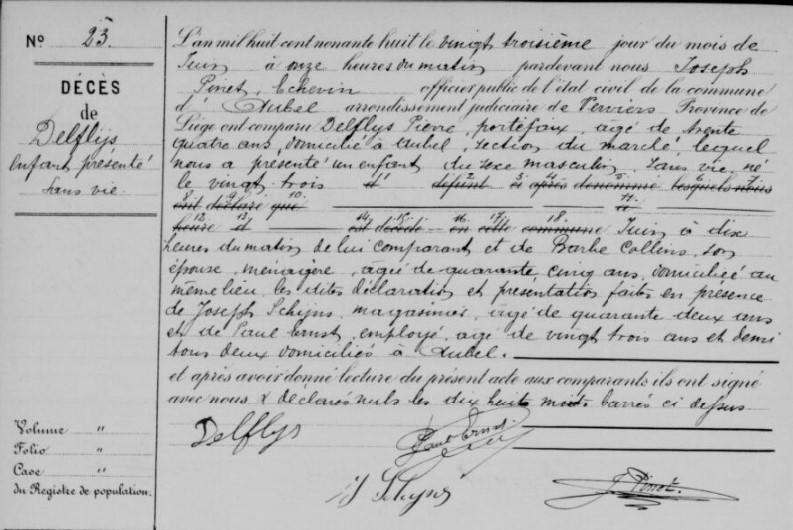 N° 23.
DÉCÈS
de
Delflijs
Enfant présenté
sans vie.
Volume "
Folio "
Case "
du Registre de population.
L'an mil huit cent nonante huit le vingt troisième jour du mois de
Juin à onze heures du matin pardevant nous Joseph
Pinet, Echevin officier public de l'état civil de la commune
d'Aubel arrondissement judiciaire de Verviers Province de
Liége ont comparu Delflys Pierre, portefaix, agé de trente
quatre ans, domicilié à Aubel, section du marché, lequel
nous a présenté un enfant du sexe masculin, sans vie, né
le vingt trois d' 1 défunt 2 ci 3 après 4 dénommé 5 lesquels 6 nous 7
ont 8 déclaré 9 que 10 a 11
heure 12 d 13 est 14 décédé 15 en 16 cette 17 commune 18 Juin à dix
heures du matin de lui comparant et de Barbe Collins, son
épouse, ménagère, agée de quarante cinq ans, domiciliée au
même lieu, les dites déclaration et présentation faites en présence
de Joseph Schijns, magasinier, agé de quarante deux ans
et de Paul Ernst, employé, agé de vingt trois ans et demi
tous deux domiciliés à Aubel.
et après avoir donné lecture du présent acte aux comparants ils ont signé
avec nous & déclarés nuls les dix huit mots barrés ci dessus
Delflys
Paul Ernst
J Schijns
J. Pinet.